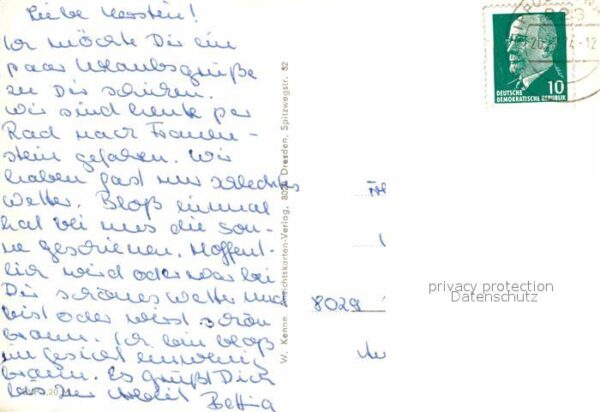 Liebe Kerstin!
Ich möchte Dir ein
paar Urlaubsgrüße
zu Dir schicken.
Wir sind heute per
Rad nach Frauen-
stein gefahren. Wir
haben fast nur schlechtes
Wetter. Bloß einmal
hat bei uns die Son-
ne geschienen. Hoffent-
lich wird oder war bei
Dir schönes Wetter und
bist oder wirst schön
braun. Ich bin bloß
im Gesicht ein wenig
braun. Es grüßt Dich
Bettina
W. Kenne Ansichtskarten-Verlag, 8021 Dresden, Spitzwegstr. 52
10
DEUTSCHE
DEMOKRATISCHE REPUBLIK
8029
privacy protection
Datenschutz